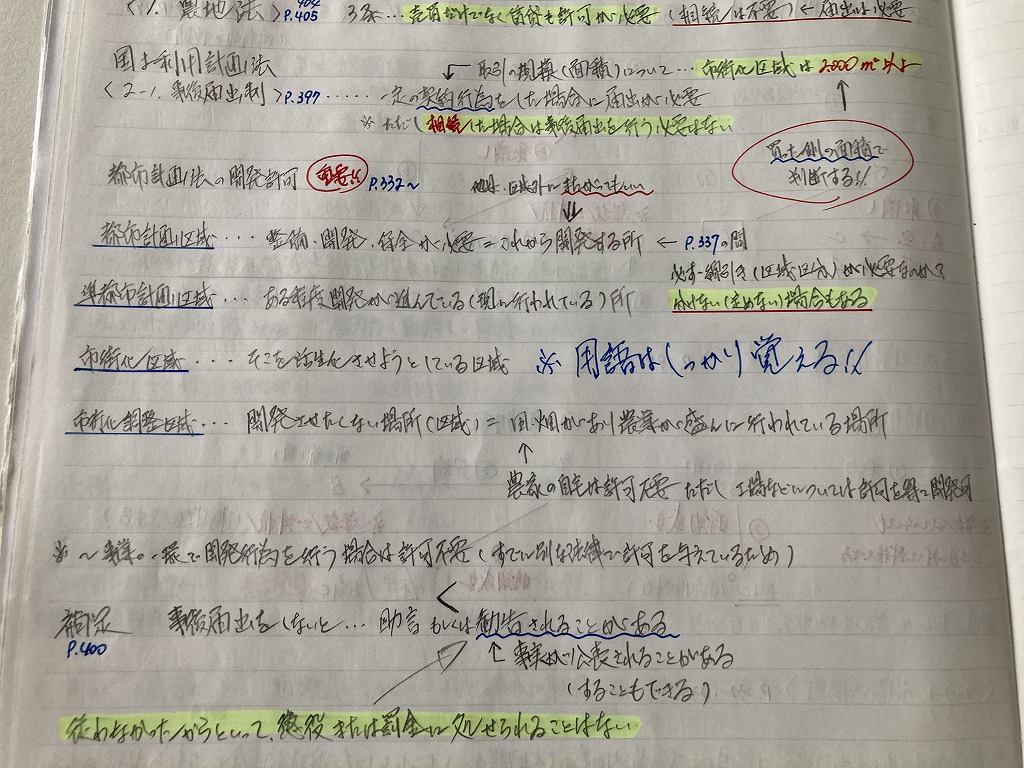 〈1. 農地法〉 P.405 3条…売買だけでなく賃貸も許可が必要 (相続は不要) ← 届出は必要
国土利用計画法
↓ 取引の規模(面積)について… 市街化区域は2000㎡以上
〈2-1. 事後届出制〉P.397 ‥‥‥ 一定の契約行為をした場合に届出が必要
※ ただし相続した場合は事後届出を行う必要はない
↑
買主側の面積で
判断する!!
都市計画法の開発許可 重要!! P.332〜
区域外にまたがってもいい
⇓
都市計画区域‥‥ 整備・開発・保全が必要=これから開発する所 ← P.337の問
必ず線引き(区域区分)が必要なのか?
準都市計画区域… ある程度開発が進んでいる(現に行われている)所
しない(定めない)場合もある
市街化区域‥‥ そこを活性化させようとしている区域 ※ 用語はしっかり覚える!!
市街化調整区域… 開発させたくない場所(区域)=田・畑があり農業が盛んに行われている場所
↑
農家の自宅は許可不要 ただし 工場などについては許可を得て開発可
※ 〜事業の一環で開発行為を行う場合は許可不要(すでに別な法律で許可を与えているため)
補足 事後届出をしないと… 助言 もしくは勧告されることがある
P.400
↑ 事実が公表されることがある
(することもできる)
従わなかったからといって、懲役または罰金に処せられることはない